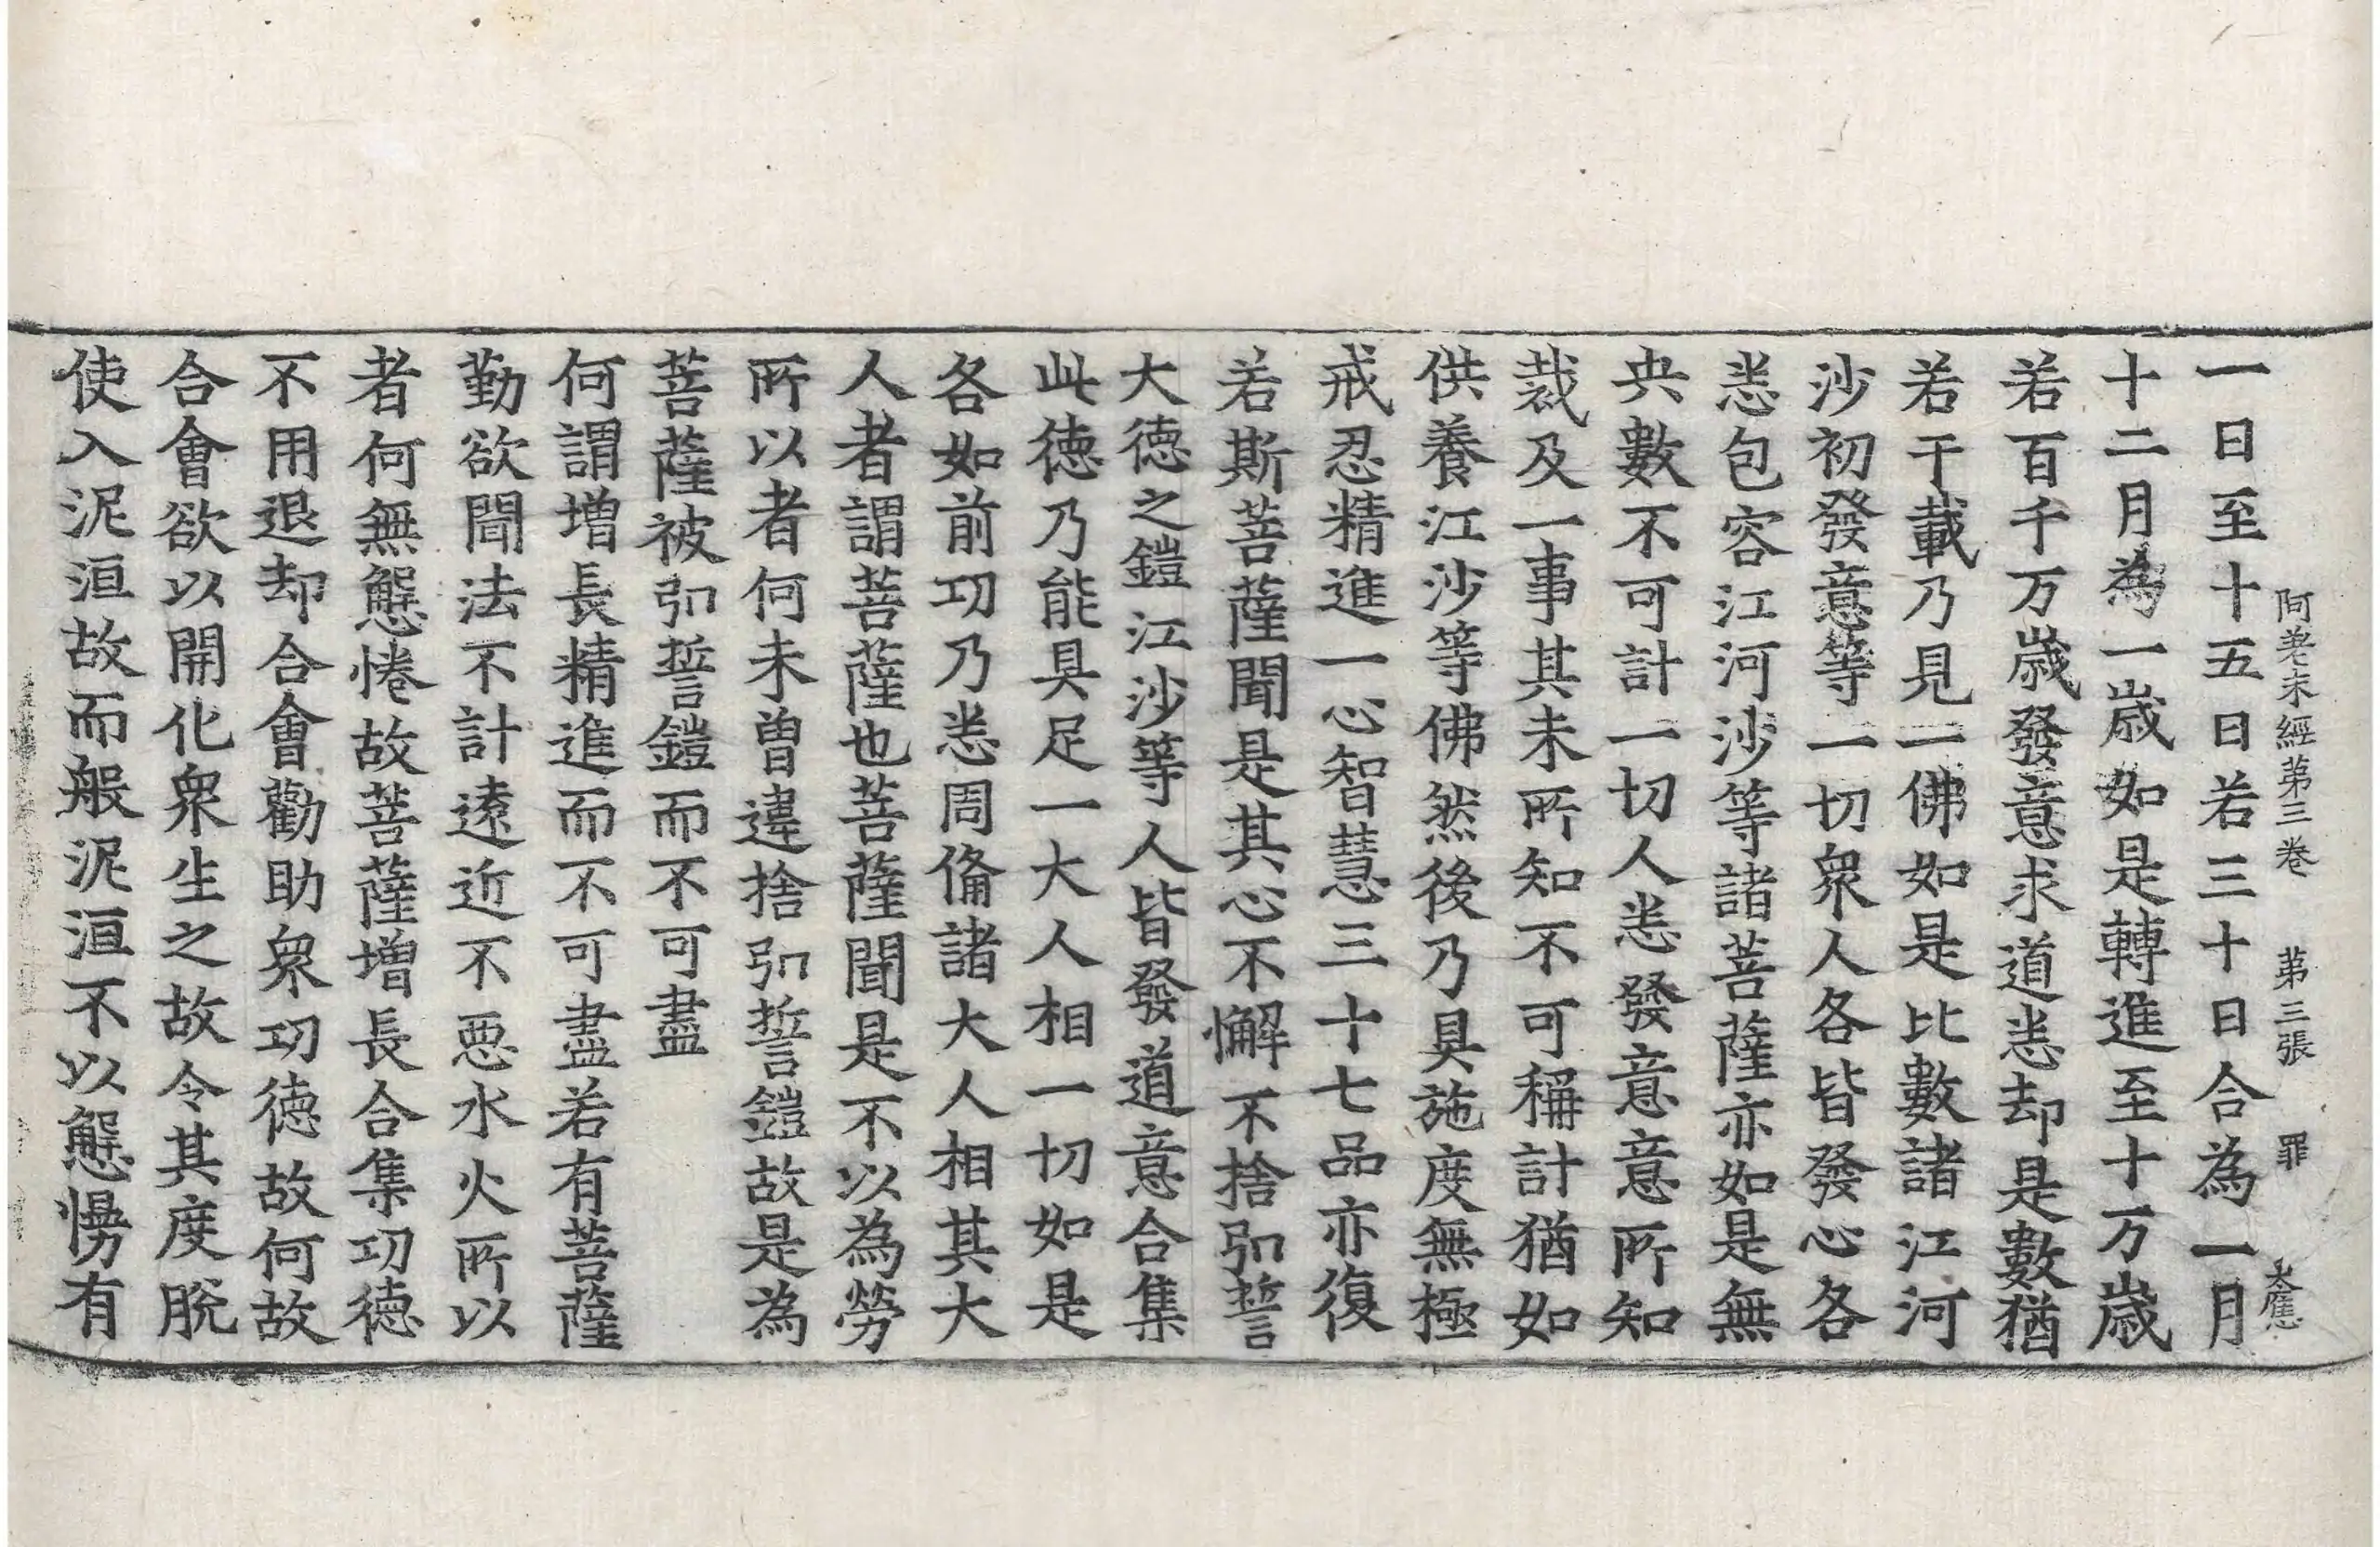 阿差末經第三卷　第三張　罪　大應
一日至十五日若三十日合為一月
十二月為一歳如是轉進至十万歳
若百千万歳發意求道悉却是數猶
若干載乃見一佛如是比數諸江河
沙初發意等一切衆人各皆發心各
悉包容江河沙等諸菩薩亦如是無
央數不可計一切人悉發意意所知
裁及一事其未所知不可稱計猶如
供養江沙等佛然後乃具施度無極
戒忍精進一心智慧三十七品亦復
若斯菩薩聞是其心不懈不捨弘誓
大德之鎧江沙等人皆發道意合集
此德乃能具足一大人相一切如是
各如前功乃悉周俻諸大人相其大
人者謂菩薩也菩薩聞是不以為勞
所以者何未曽違捨弘誓鎧故是為
菩薩被弘誓鎧而不可盡
何謂增長精進而不可盡若有菩薩
勤欲聞法不計遠近不惡水火所以
者何無懈惓故菩薩增長合集功德
不用退却合會勸助衆功德故何故
合會欲以開化衆生之故令其度脫
使入泥洹故而般泥洹不以懈慢有